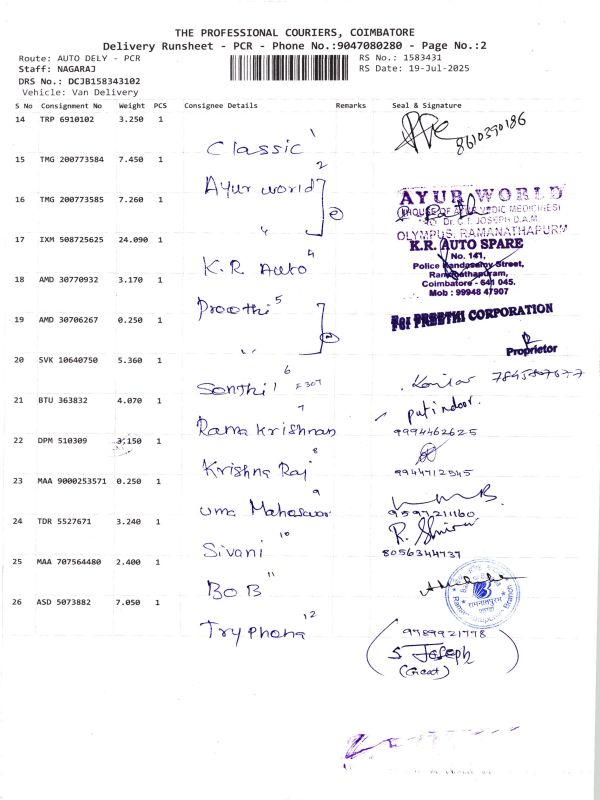 THE PROFESSIONAL COURIERS, COIMBATORE
Delivery Runsheet - PCR - Phone No.:9047080280 - Page No.:2
Route: AUTO DELY - PCR
RS No.: 1583431
Staff: NAGARAJ
RS Date: 19-Jul-2025
DRS No.: DCJB158343102
Vehicle: Van Delivery
S No Consignment No Weight PCS Consignee Details Remarks Seal & Signature
14 TRP 6910102 3.250 1
Classic 1
8610390186
15 TMG 200773584 7.450 1
Ayur world 2
16 TMG 200773585 7.260 1
AYUR WORLD
(HOUSE OF AYURVEDIC MEDICINES)
Dr. C.T. JOSEPH D.A.M.
OLYMPUS, RAMANATHAPURM
17 IXM 508725625 24.090 1
K.R Auto 4
K.R. AUTO SPARE
No. 141,
Police Kandasamy Street,
Ramanathapuram,
Coimbatore - 641 045.
Mob : 99948 47907
18 AMD 30770932 3.170 1
Preethi 5
19 AMD 30706267 0.250 1
For PREETHI CORPORATION
Proprietor
20 SVK 10640750 5.360 1
Senthil 6
21 BTU 363832 4.070 1
Rama Krishnan 7
9994462625
22 DPM 510309 3.150 1
Krishna Raj 8
9944712545
23 MAA 9000253571 0.250 1
uma Mahaswar 9
9597211160
24 TDR 5527671 3.240 1
Sivani 10
8056344737
25 MAA 707564480 2.400 1
BOB 11
26 ASD 5073882 7.050 1
Tryphena 12
9789921778
S Joseph